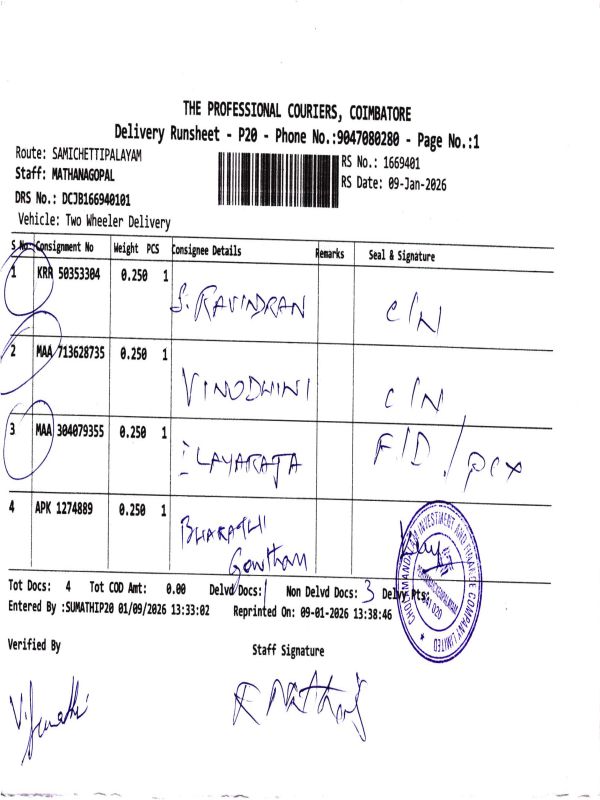 THE PROFESSIONAL COURIERS, COIMBATORE
Delivery Runsheet - P20 - Phone No.:9047080280 - Page No.:1
Route: SAMICHETTIPALAYAM
Staff: MATHANAGOPAL
DRS No.: DCJB166940101
Vehicle: Two Wheeler Delivery
RS No.: 1669401
RS Date: 09-Jan-2026
S No. Consignment No Weight PCS Consignee Details Remarks Seal & Signature
1 KRR 50353304 0.250 1
S. RAVINDRAN C/N
2 MAA 713628735 0.250 1
VINODHINI C/N
3 MAA 304079355 0.250 1 F/D /
ILAYARAJA
4 APK 1274889 0.250 1
BHARATHI
Gowtham
CHOLAMANDALAM INVESTMENT AND FINANCE COMPANY LIMITED
641 020
Tot Docs: 4 Tot COD Amt: 0.00 Delvd Docs: 1 Non Delvd Docs: 3 Delvy Pts:
Entered By :SUMATHIP20 01/09/2026 13:33:02 Reprinted On: 09-01-2026 13:38:46
Verified By Staff Signature